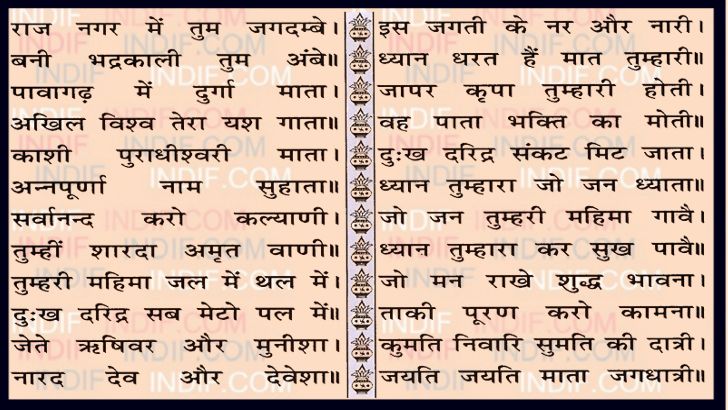 राज नगर में तुम जगदम्बे।
बनी भद्रकाली तुम अंबे॥
पावागढ़ में दुर्गा माता।
अखिल विश्व तेरा यश गाता॥
काशी पुराधीश्वरी माता।
अन्नपूर्णा नाम सुहाता॥
सर्वानन्द करो कल्याणी।
तुम्हीं शारदा अमृत वाणी॥
तुम्हरी महिमा जल में थल में।
दुःख दरिद्र सब मेटो पल में॥
जेते ऋषिवर और मुनीशा।
नारद देव और देवेशा॥
इस जगती के नर और नारी।
ध्यान धरत हैं मात तुम्हारी॥
जापर कृपा तुम्हारी होती।
वह पाता भक्ति का मोती॥
दुःख दरिद्र संकट मिट जाता।
ध्यान तुम्हारा जो जन ध्याता॥
जो जन तुम्हरी महिमा गावै।
ध्यान तुम्हारा कर सुख पावै॥
जो मन राखे शुद्ध भावना।
ताकी पूरण करो कामना॥
कुमति निवारि सुमति की दात्री।
जयति जयति माता जगधात्री॥
INDIF.COM